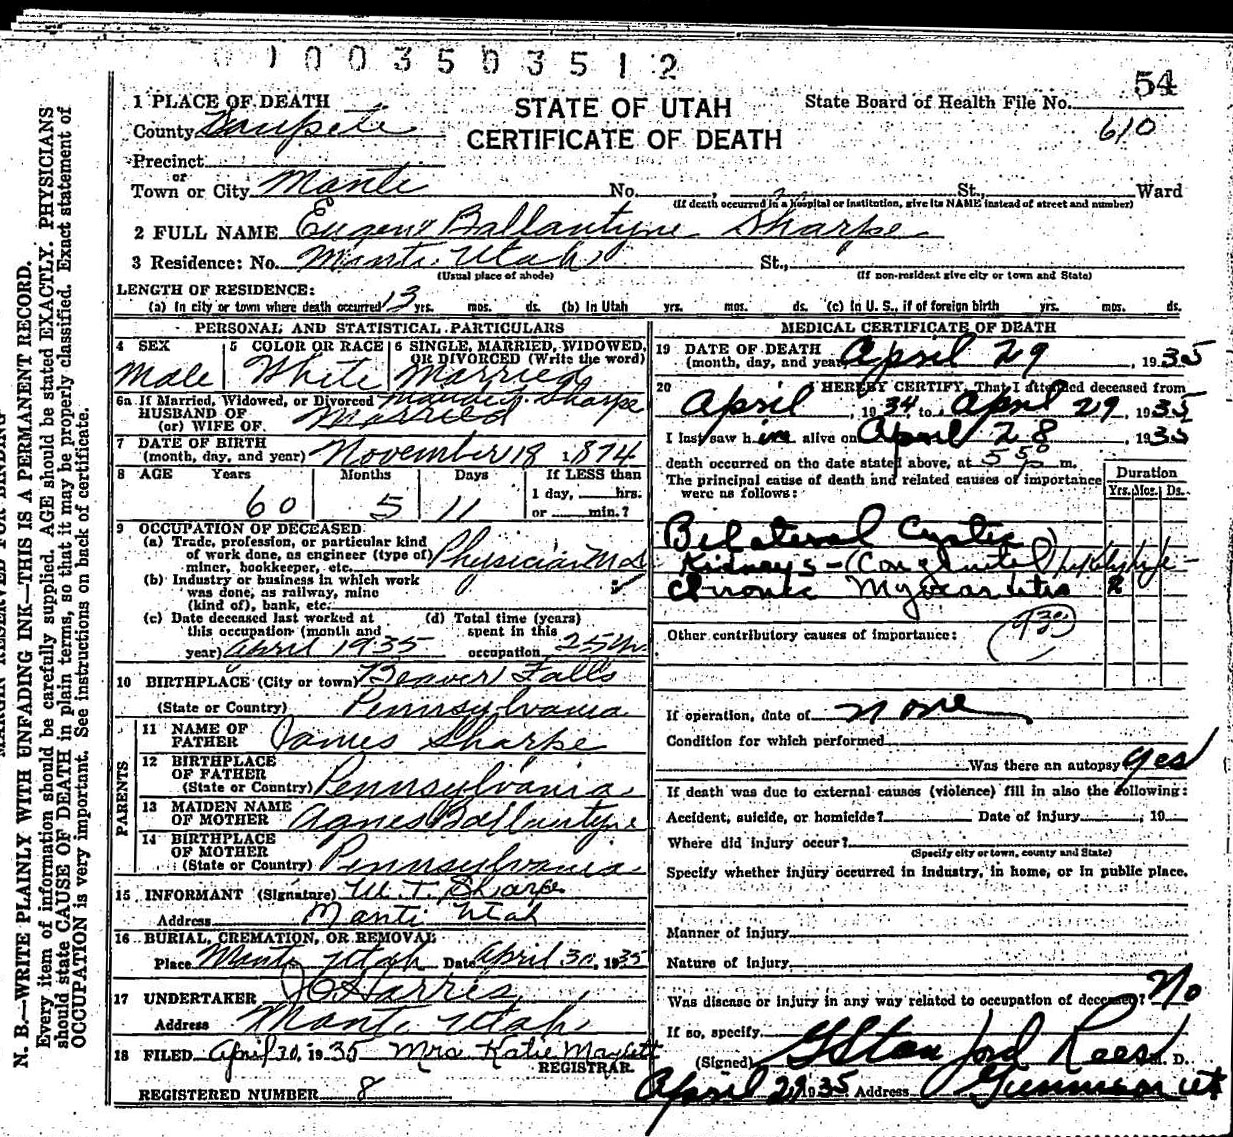 0 1 0 0 3 5 0 3 5 1 2
54
1 PLACE OF DEATH
STATE OF UTAH
State Board of Health File No.
County Sanpete
CERTIFICATE OF DEATH
610
Precinct
or
Town or City Manti No. , St., Ward
(If death occurred in a hospital or institution, give its NAME instead of street and number)
2 FULL NAME Eugene Ballantyne Sharpe
3 Residence: No. Manti Utah St.,
(Usual place of abode) (If non-resident give city or town and State)
LENGTH OF RESIDENCE:
(a) In city or town where death occurred 13 yrs. mos. ds. (b) In Utah yrs. mos. ds. (c) In U. S., if of foreign birth yrs. mos. ds.
PERSONAL AND STATISTICAL PARTICULARS
4 SEX
Male
5 COLOR OR RACE
White
6 SINGLE, MARRIED, WIDOWED,
OR DIVORCED (Write the word)
Married
6a If Married, Widowed, or Divorced Sharpe
HUSBAND OF
(or) WIFE OF. Married
7 DATE OF BIRTH
(month, day, and year) November 18 1874
8 AGE Years Months Days If LESS than
1 day, hrs.
or min.?
60 5 11
9 OCCUPATION OF DECEASED
(a) Trade, profession, or particular kind
of work done, as engineer (type of)
miner, bookkeeper, etc. Physician
(b) Industry or business in which work
was done, as railway, mine
(kind of), bank, etc.
(c) Date deceased last worked at
this occupation (month and
year) April 1935
(d) Total time (years)
spent in this
occupation 25
10 BIRTHPLACE (City or town) Beaver Falls
(State or Country) Pennsylvania
PARENTS
11 NAME OF
FATHER James Sharpe
12 BIRTHPLACE
OF FATHER
(State or Country) Pennsylvania
13 MAIDEN NAME
OF MOTHER Agnes Ballantyne
14 BIRTHPLACE
OF MOTHER
(State or Country) Pennsylvania
15 INFORMANT (Signature) W. T. Sharpe
Address Manti Utah
16 BURIAL, CREMATION, OR REMOVAL
Place Manti Utah Date April 30, 1935
17 UNDERTAKER Harris
Address Manti Utah
18 FILED April 30, 1935 Mrs Katie
REGISTRAR
REGISTERED NUMBER 8
MEDICAL CERTIFICATE OF DEATH
19 DATE OF DEATH
(month, day, and year) April 29, 1935
20 I HEREBY CERTIFY, That I attended deceased from
April, 1934 to April 29, 1935
I last saw him alive on April 28, 1935
death occurred on the date stated above, at 5 50 m.
The principal cause of death and related causes of importance
were as follows:
Duration
Yrs. Mos. Ds.
Bilateral Cystic
Kidneys - (Congenital) life -
Chronic Myocarditis 2
930
Other contributory causes of importance:
If operation, date of none
Condition for which performed
Was there an autopsy? yes
If death was due to external causes (violence) fill in also the following:
Accident, suicide, or homicide? Date of injury , 19
Where did injury occur?
(Specify city or town, county and State)
Specify whether injury occurred in industry, in home, or in public place.
Manner of injury
Nature of injury
Was disease or injury in any way related to occupation of deceased? No
If so, specify
(Signed) G Stanford Rees M. D.
April 29 1935 Address Gunnison Ut
MARGIN RESERVED FOR BINDING
N. B.—WRITE PLAINLY WITH UNFADING INK—THIS IS A PERMANENT RECORD.
Every item of information should be carefully supplied. AGE should be stated EXACTLY. PHYSICIANS
should state CAUSE OF DEATH in plain terms, so that it may be properly classified. Exact statement of
OCCUPATION is very important. See instructions on back of certificate.